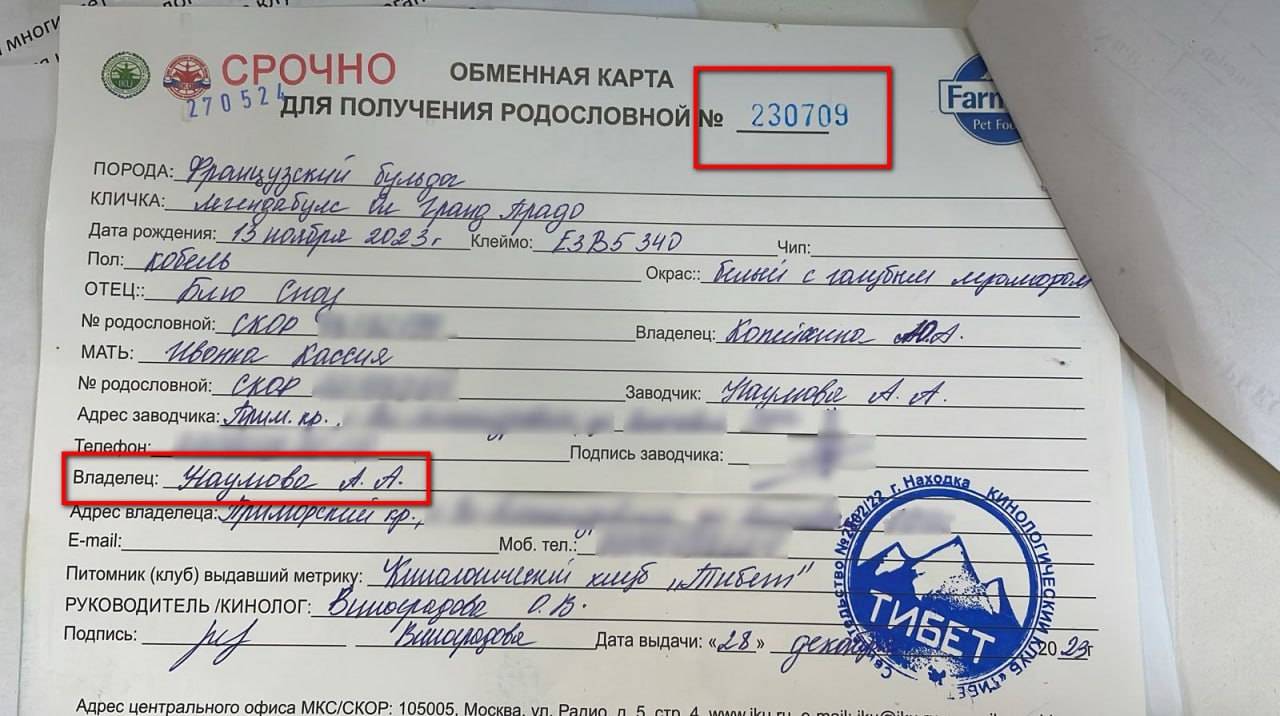 СРОЧНО
270524
ОБМЕННАЯ КАРТА
ДЛЯ ПОЛУЧЕНИЯ РОДОСЛОВНОЙ № 230709
Farm
Pet Foo
ПОРОДА: Французский бульдог
КЛИЧКА: Легендабулс Ол Гранд Прадо
Дата рождения: 13 ноября 2023г Клеймо: ЕЗВ5340 Чип:
Пол: кобель Окрас:: белый с голубым мрамором
ОТЕЦ:: Блю Сноу
№ родословной: СКОР Владелец: Копейкина Ю.А.
МАТЬ: Ивонна Кассия
№ родословной: СКОР Заводчик: Наумова А. А.
Адрес заводчика: Прим. кр.,
Телефон: Подпись заводчика:
Владелец: Наумова А. А.
Адрес владельца: Приморский кр.,
E-mail: Моб. тел.:
Питомник (клуб) выдавший метрику: Кинологический клуб „Тибет"
РУКОВОДИТЕЛЬ /КИНОЛОГ: Виноградова О. В.
Подпись: Виноградова Дата выдачи: «28» декабр 2023г
г. Находка КИНОЛОГИЧЕСКИЙ КЛУБ «ТИБЕТ
ТИБЕТ
Адрес центрального офиса МКС/СКОР: 105005, Москва, ул. Радио, д. 5, стр. 4, www.iku.ru, e-mail: